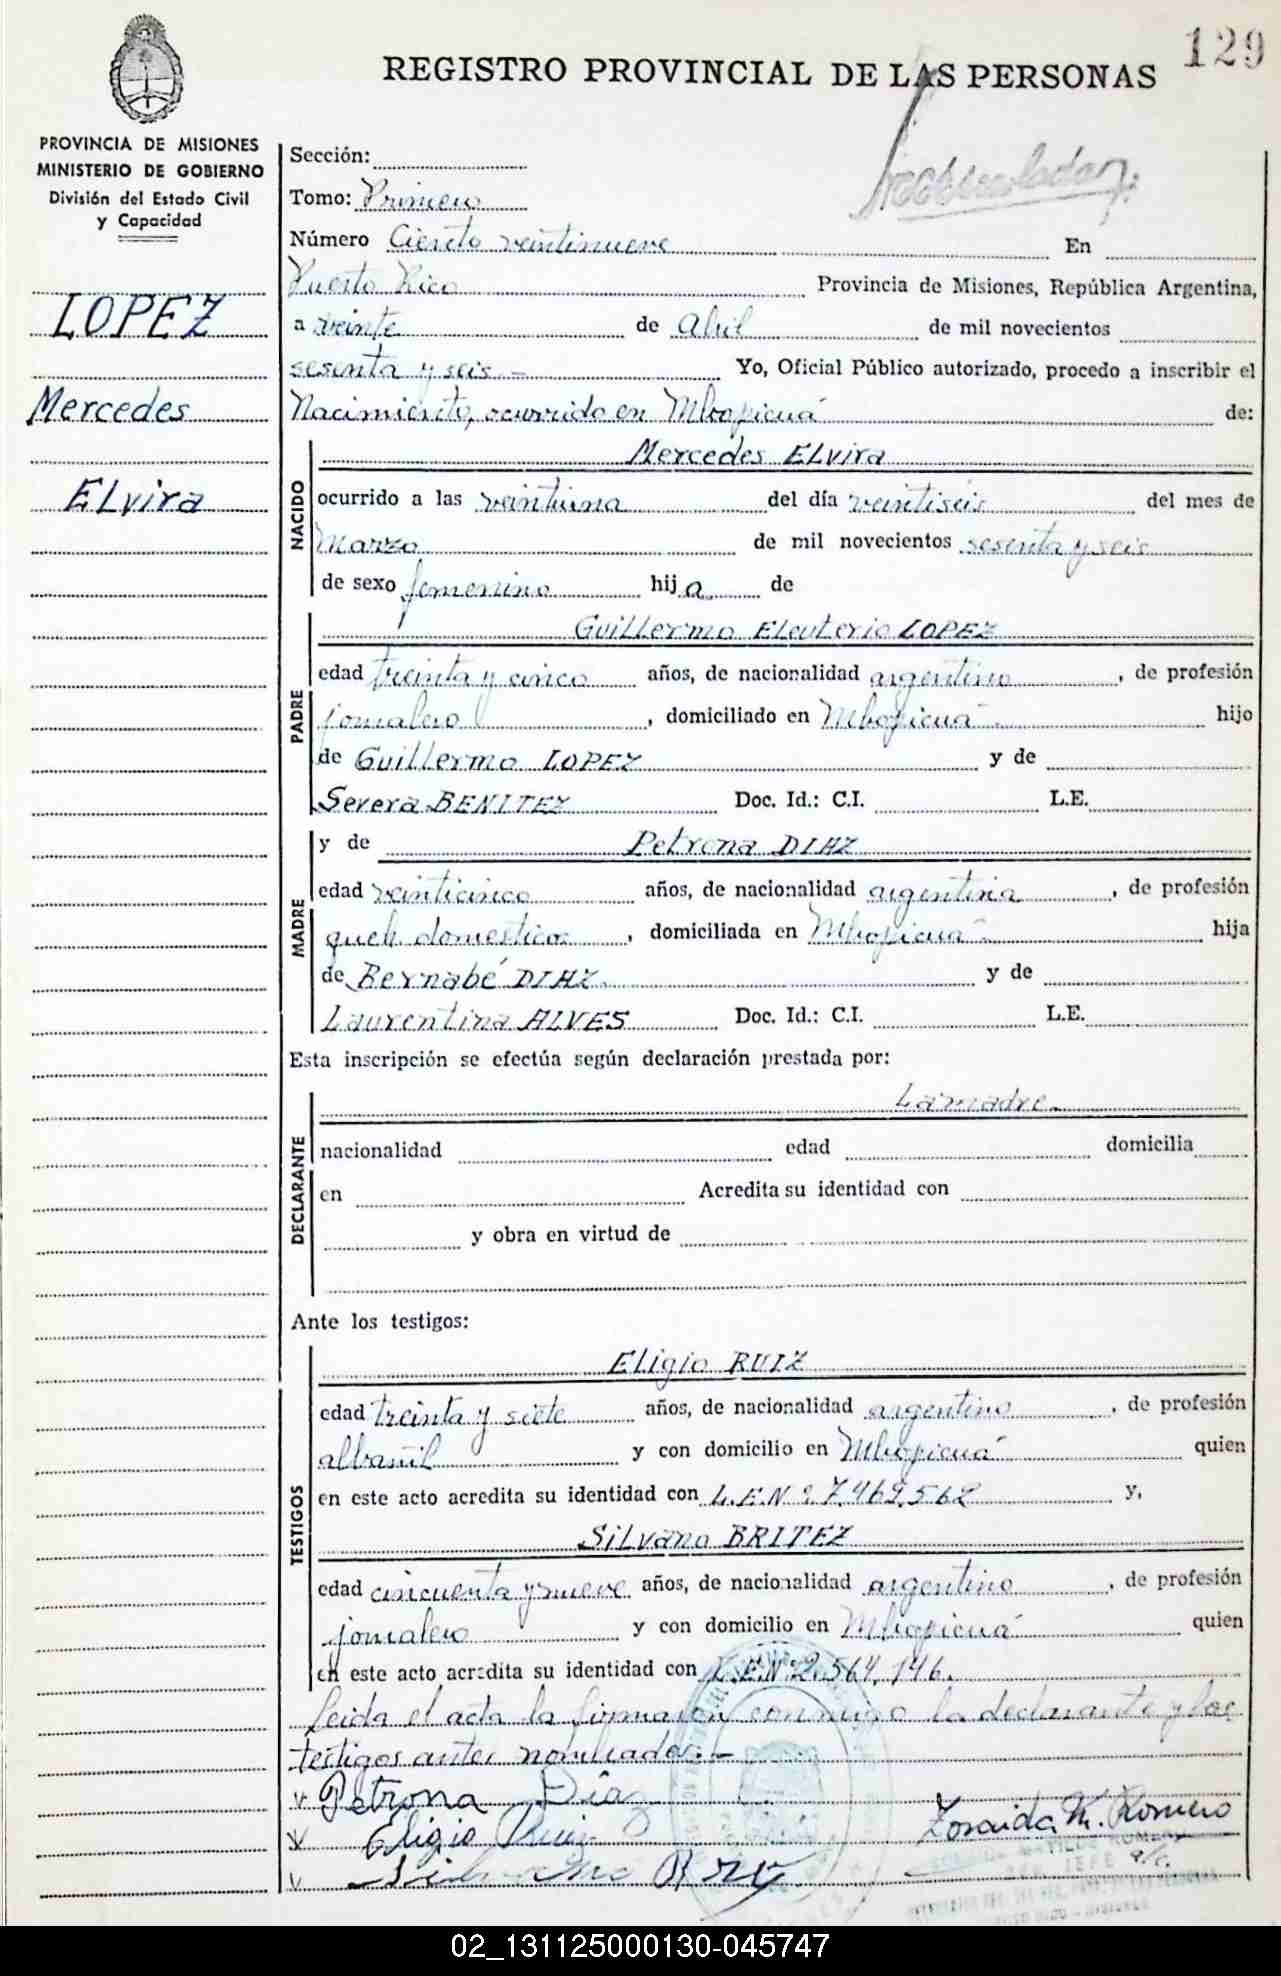 129
REGISTRO PROVINCIAL DE LAS PERSONAS
PROVINCIA DE MISIONES
MINISTERIO DE GOBIERNO
División del Estado Civil
y Capacidad
LOPEZ
Mercedes
Elvira
Sección:
Tomo: Primero
Número Ciento veintinueve En
Puerto Rico Provincia de Misiones, República Argentina,
a veinte de Abril de mil novecientos
sesenta y seis.- Yo, Oficial Público autorizado, procedo a inscribir el
Nacimiento, ocurrido en Mbopicuá de:
NACIDO
Mercedes Elvira
ocurrido a las veintiuna del día veintiseis del mes de
Marzo de mil novecientos sesenta y seis
de sexo femenino hija de
PADRE
Guillermo Eleuterio LOPEZ
edad treinta y cinco años, de nacionalidad argentino, de profesión
jornalero, domiciliado en Mbopicuá hijo
de Guillermo LOPEZ y de
Severa BENITEZ Doc. Id.: C.I. L.E.
MADRE
y de Petrona DIAZ
edad veinticinco años, de nacionalidad argentina, de profesión
queh. domesticos, domiciliada en Mbopicuá hija
de Bernabé DIAZ y de
Laurentina ALVES Doc. Id.: C.I. L.E.
Esta inscripción se efectúa según declaración prestada por:
DECLARANTE
La madre.
nacionalidad edad domicilia
en Acredita su identidad con
y obra en virtud de
Ante los testigos:
TESTIGOS
Eligio RUIZ
edad treinta y siete años, de nacionalidad argentino, de profesión
albañil y con domicilio en Mbopicuá quien
en este acto acredita su identidad con L.E.Nº 7.469.562 y,
Silvano BRITEZ
edad cincuenta y nueve años, de nacionalidad argentino, de profesión
jornalero y con domicilio en Mbopicuá quien
en este acto acredita su identidad con L.E.Nº 2.564.146.
Leida el acta la firmaron conmigo la declarante y los
testigos antes nombrados.-
Petrona Dias
Eligio Ruiz
Zoraida M. Romero
02_131125000130-045747